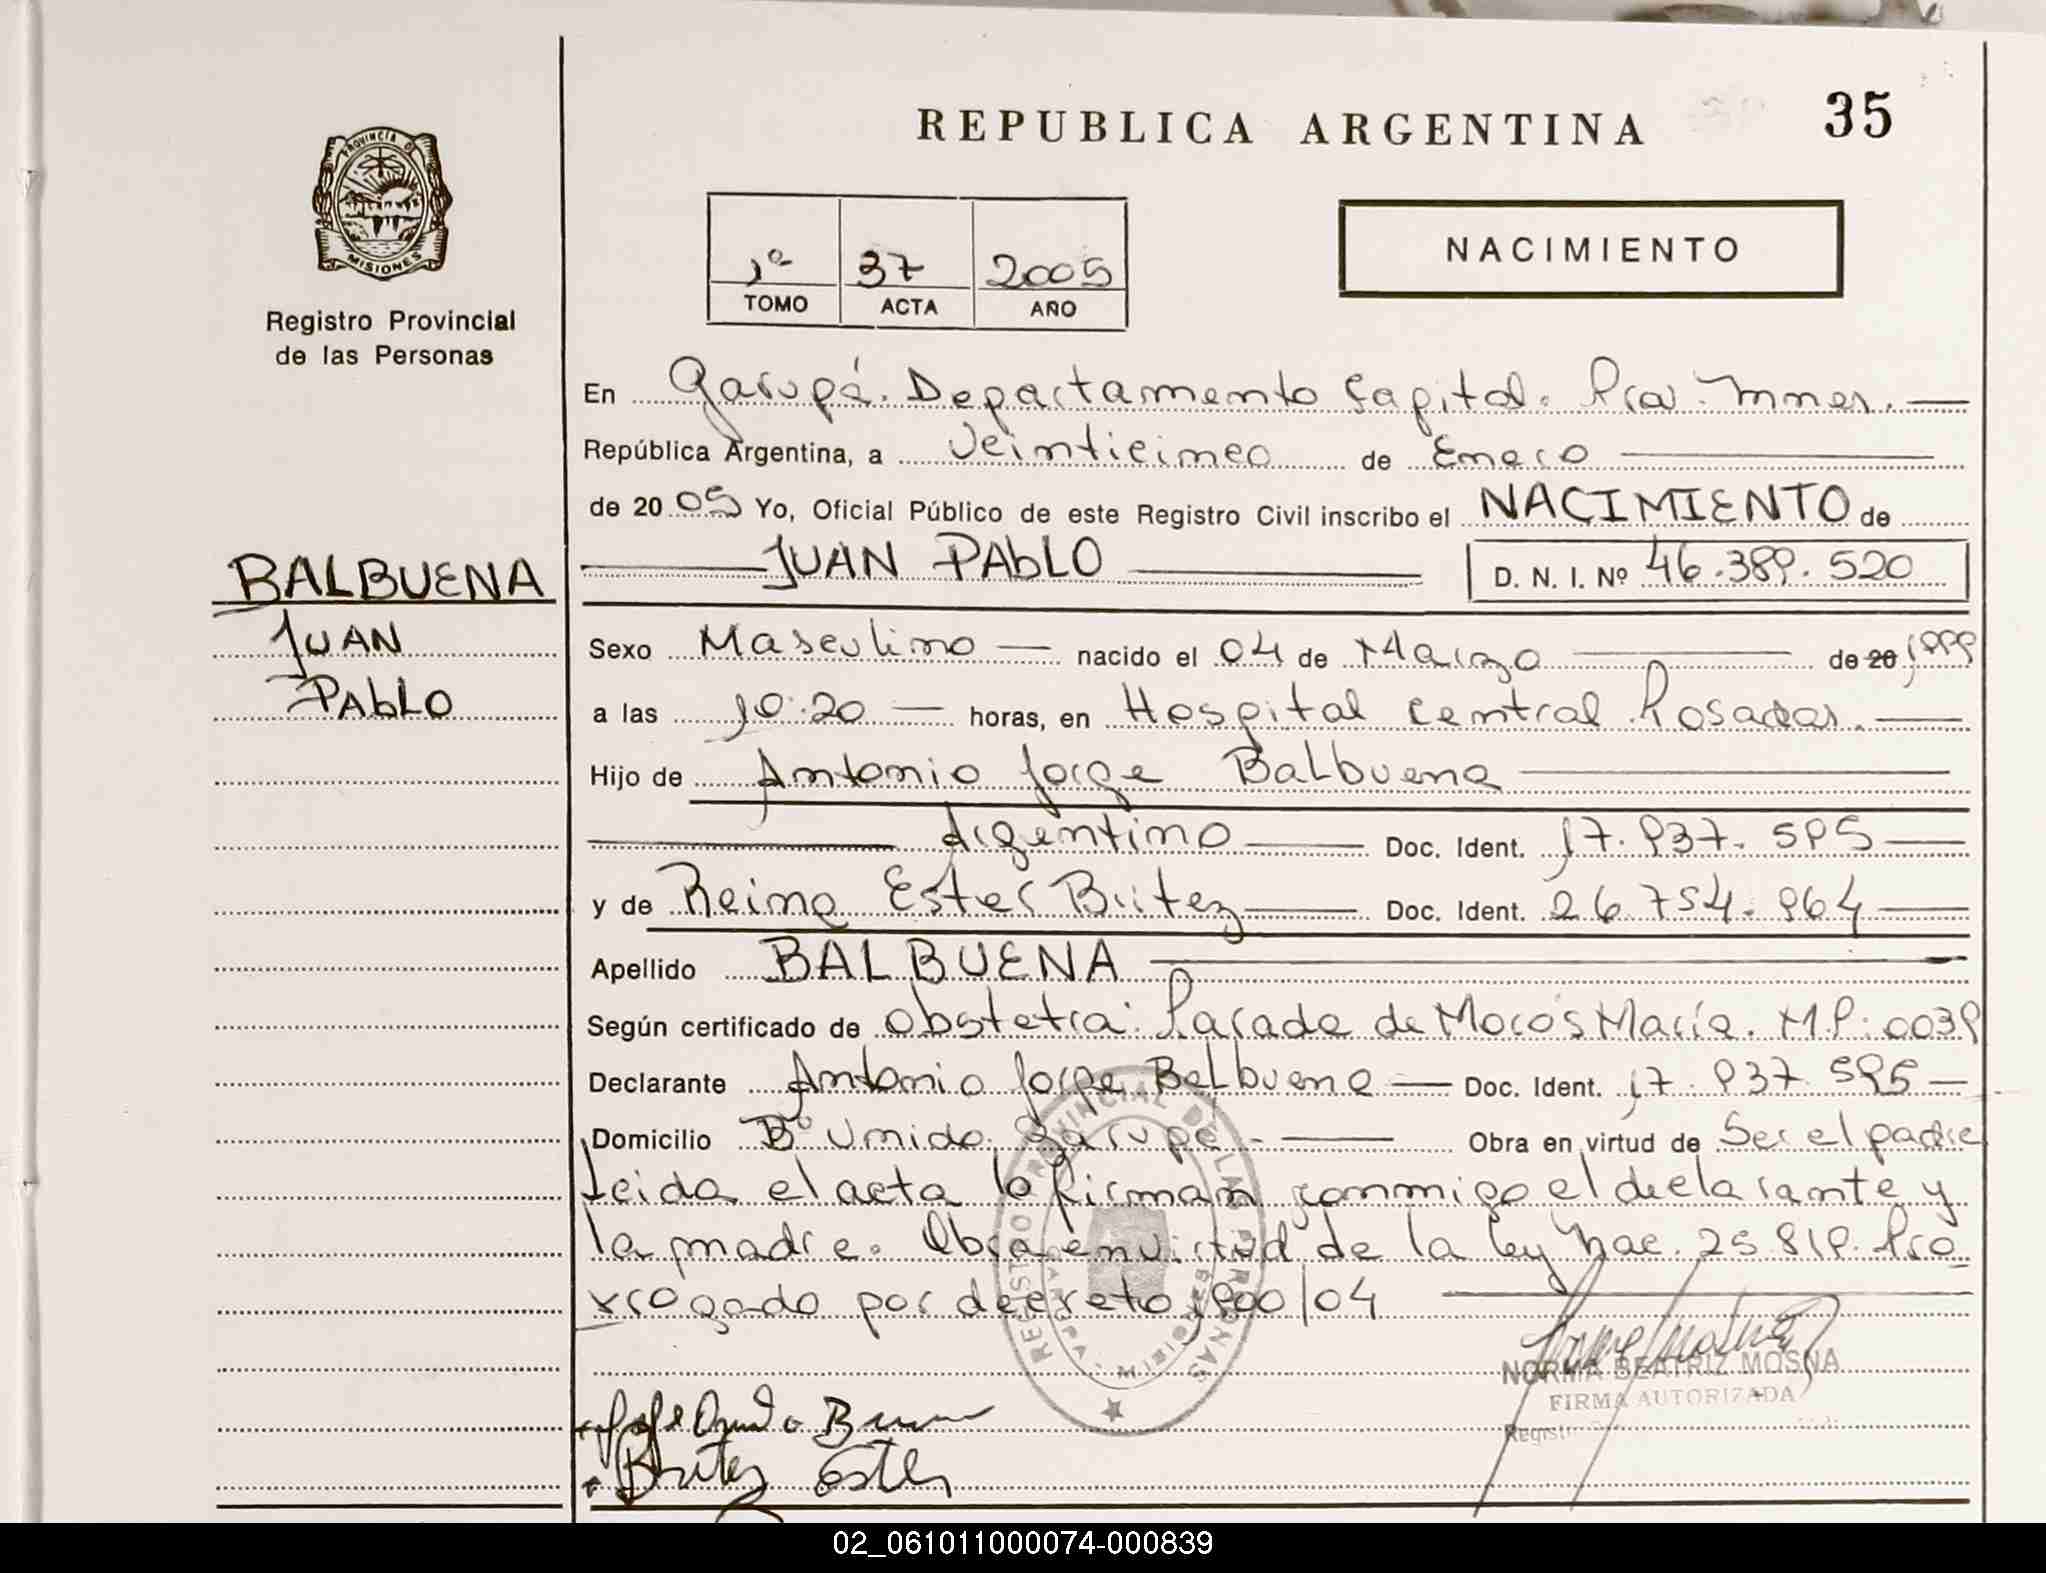 REPUBLICA ARGENTINA
35
PROVINCIA DE
MISIONES
Registro Provincial
de las Personas
1º 37 2005
TOMO ACTA AÑO
NACIMIENTO
En Garupá. Departamento Capital. Pcia. Mnes.
República Argentina, a veinticinco de Enero
de 2005 Yo, Oficial Público de este Registro Civil inscribo el NACIMIENTO de
JUAN PAbLO D. N. I. Nº 46.389.520
BALBUENA
JUAN
PAbLO
Sexo Masculino nacido el 04 de Marzo de 20 1999
a las 10:20 horas, en Hospital Central Posadas.
Hijo de Antonio Jorge Balbuena
Argentino Doc. Ident. 17.937.595
y de Reina Ester Britez Doc. Ident. 26.754.964
Apellido BALBUENA
Según certificado de Obstetra: Parada de Morós María. M.P: 0039
Declarante Antonio Jorge Balbuena Doc. Ident. 17.937.595
Domicilio Bº Unido. Garupá. Obra en virtud de Ser el padre
Leida el acta la firman conmigo el declarante y
la madre. Obra en virtud de la Ley Nac. 25.819. Pro
rrogado por decreto 1900/04
REGISTRO PROVINCIAL DE LAS PERSONAS
NORMA BEATRIZ MOSNA
FIRMA AUTORIZADA
Britez Ester
02_061011000074-000839